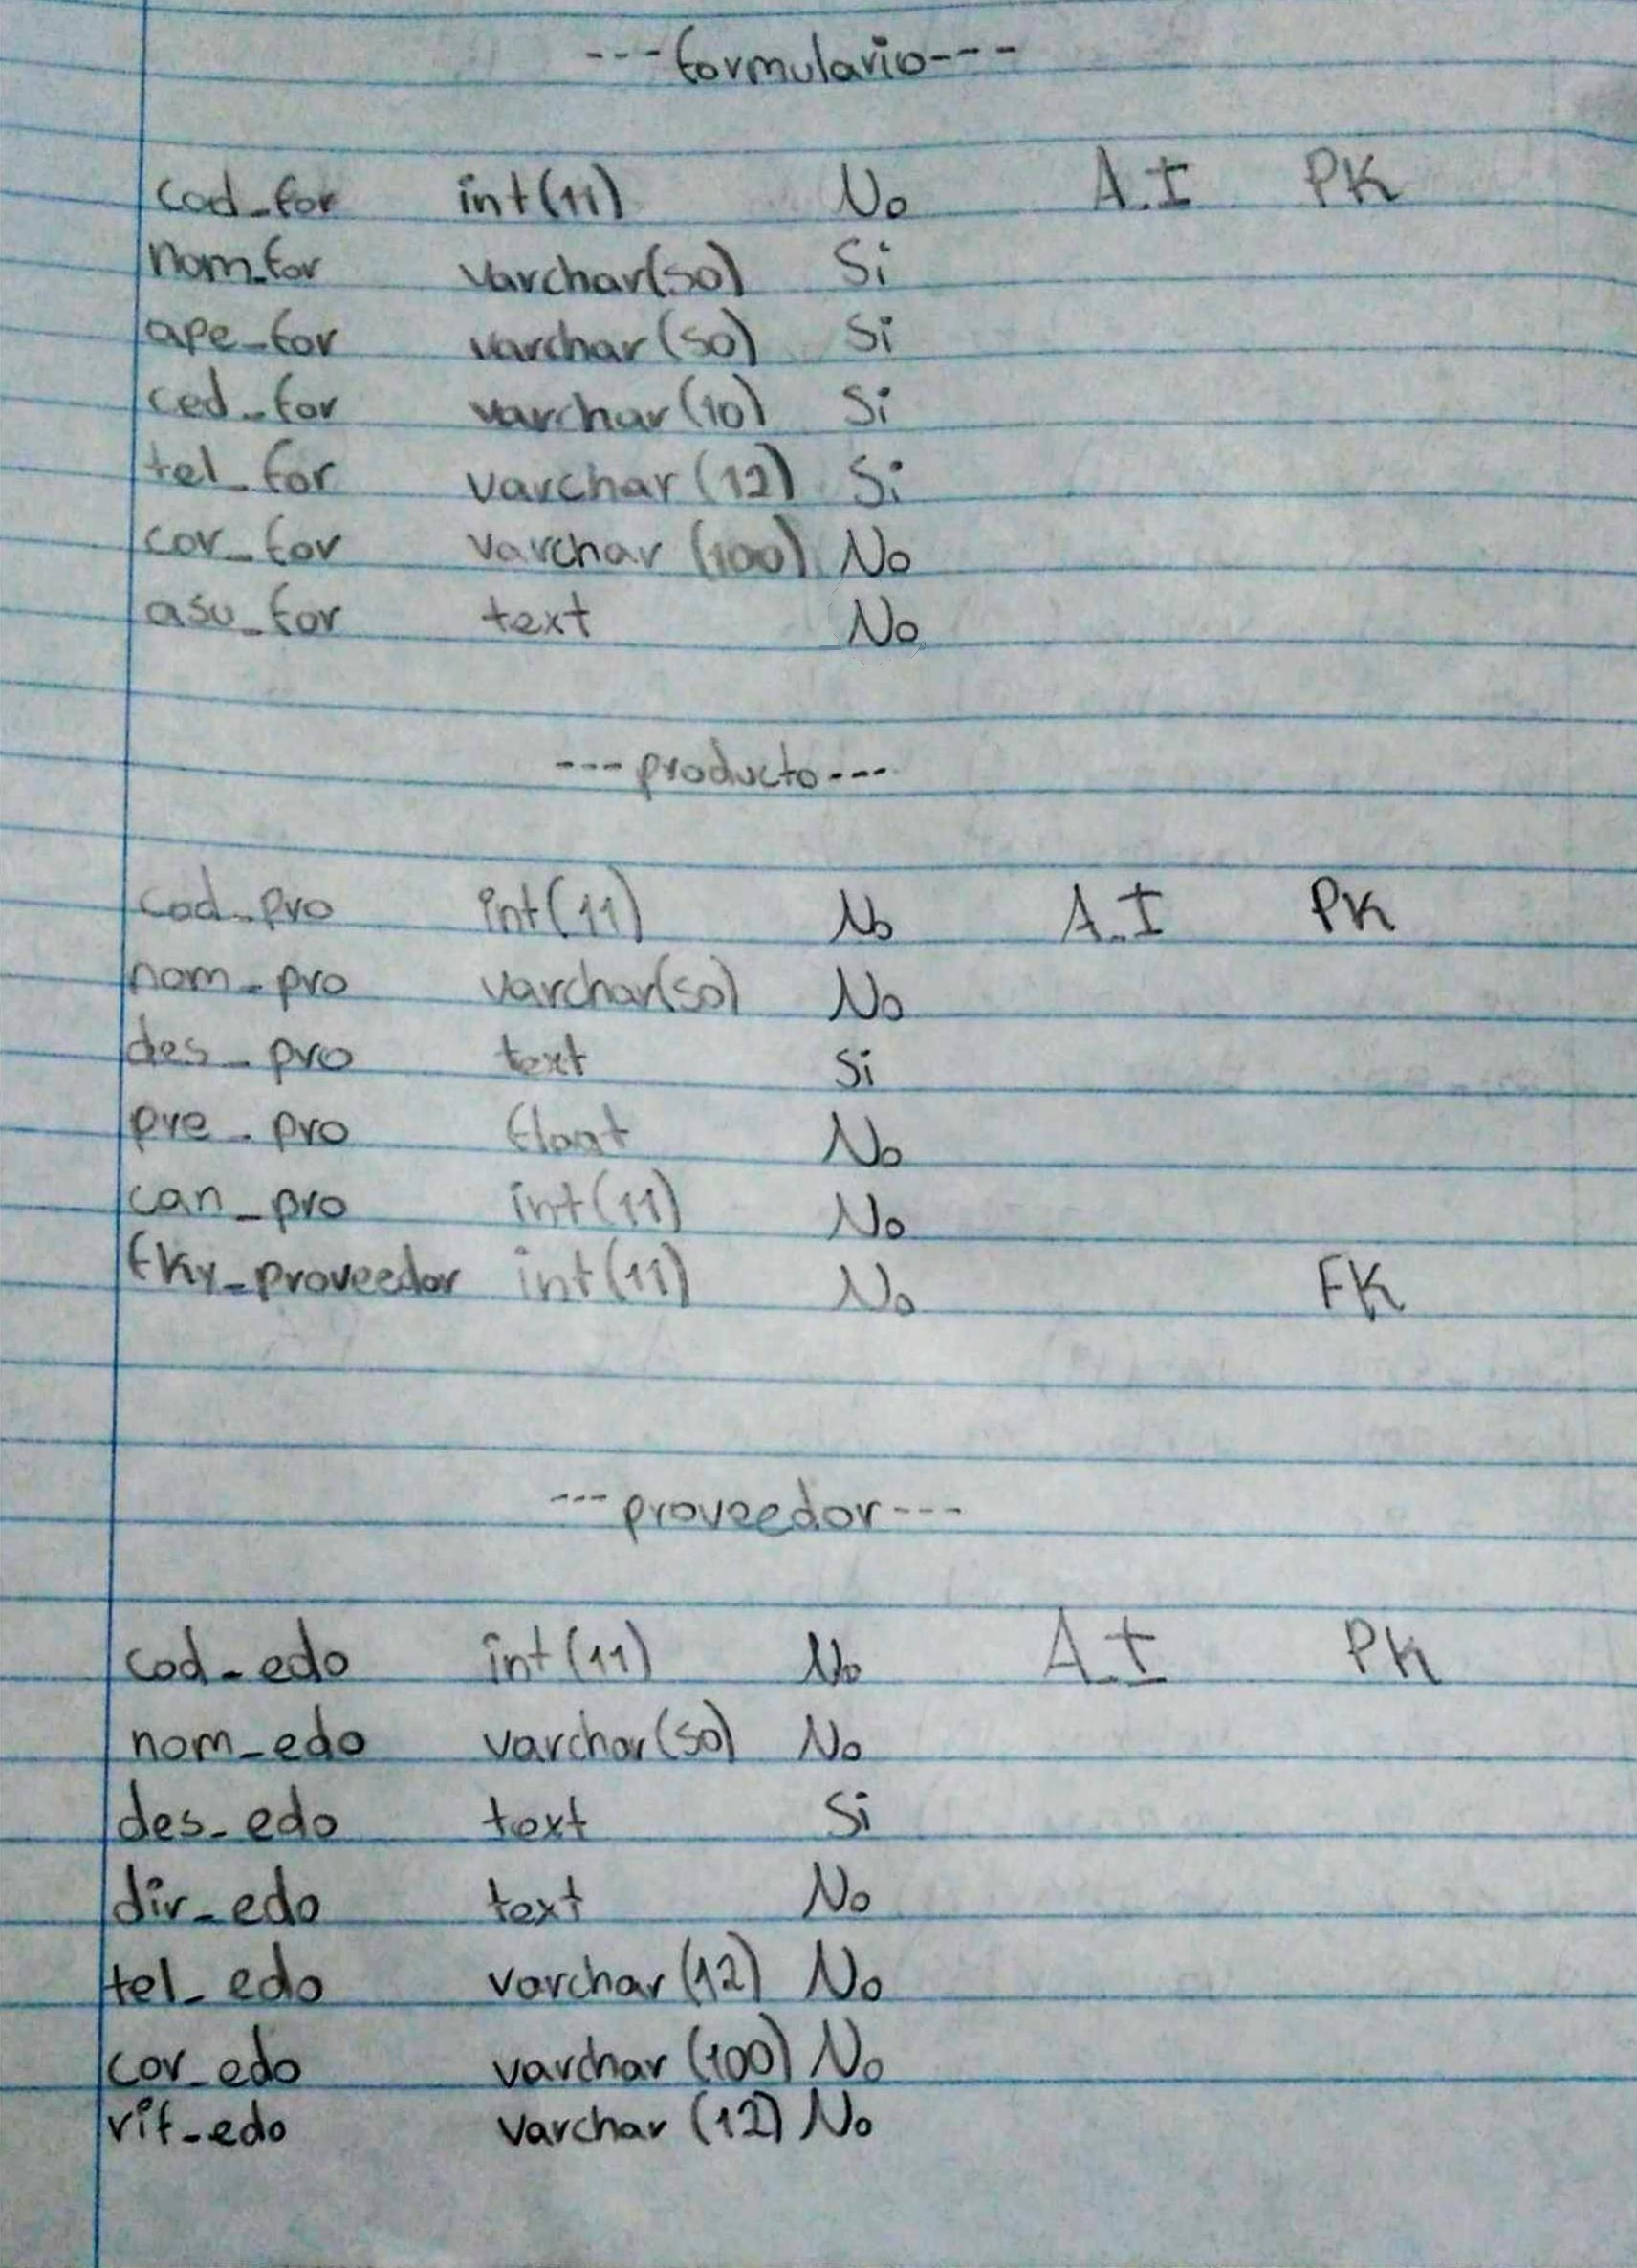 ---formulario---
cod_for int(11) No A.I PK
nom_for varchar(50) Si
ape_for varchar(50) Si
ced_for varchar(10) Si
tel_for varchar(12) Si
cor_for varchar(100) No
asu_for text No
---producto---
cod_pro int(11) No A.I PK
nom_pro varchar(50) No
des_pro text Si
pre_pro float No
can_pro int(11) No
fky_proveedor int(11) No FK
---proveedor---
cod_edo int(11) No A.I PK
nom_edo varchar(50) No
des_edo text Si
dir_edo text No
tel_edo varchar(12) No
cor_edo varchar(100) No
rif_edo varchar(12) No